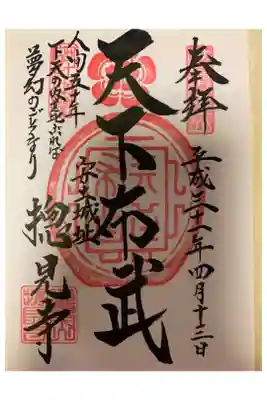 奉拝
平成三十一年四月十三日
天下布武
安土城址
人間五十年
下天の内をくらぶれば
夢幻のごとくなり
摠見寺